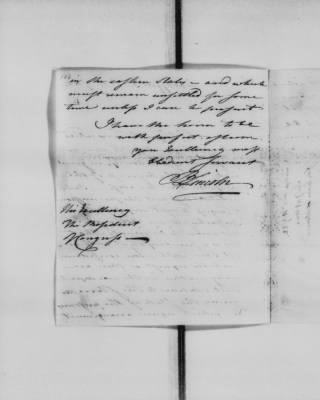 in the eastern States – and which
must remain unsettled for some
time unless I can be present
I have the honor to be
with perfect esteem
your Excellency most
Obedient Servant
B Lincoln
His Excellency
The President
of Congress